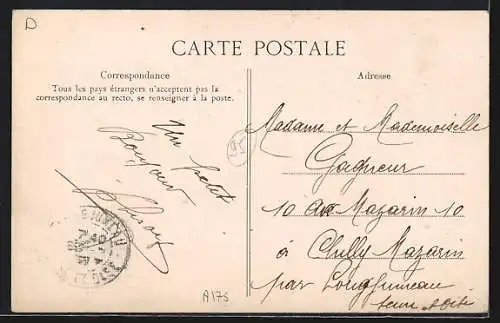 D
CARTE POSTALE
Correspondance
Tous les pays étrangers n'acceptent pas la
correspondance au recto, se renseigner à la poste.
Un petit
Bonjour
Adresse
Madame et Mademoiselle
Gagneur
10 Mazarin 10
à Chilly Mazarin
par Longjumeau
Seine et Oise
A175